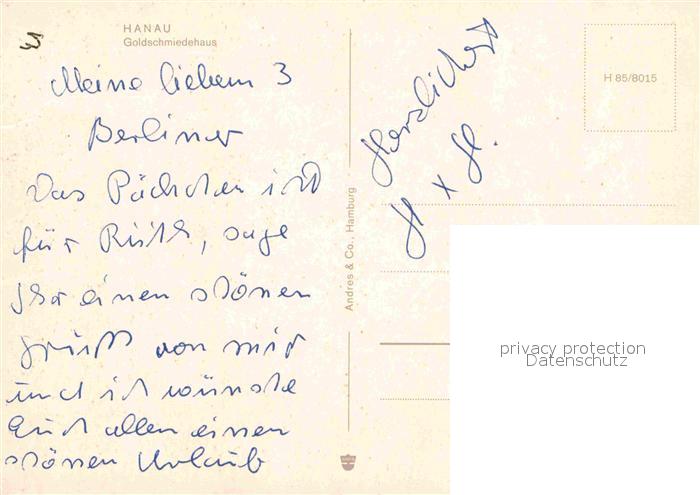 HANAU
Goldschmiedehaus
Meine lieben 3
Berliner
Das Päckchen ist
für Ruth, sage
ihr einen schönen
Gruß von mir
und ich wünsche
Euch allen einen
schönen Urlaub
Herzlichst
H x H.
Andres & Co., Hamburg
H 85/8015
privacy protection
Datenschutz